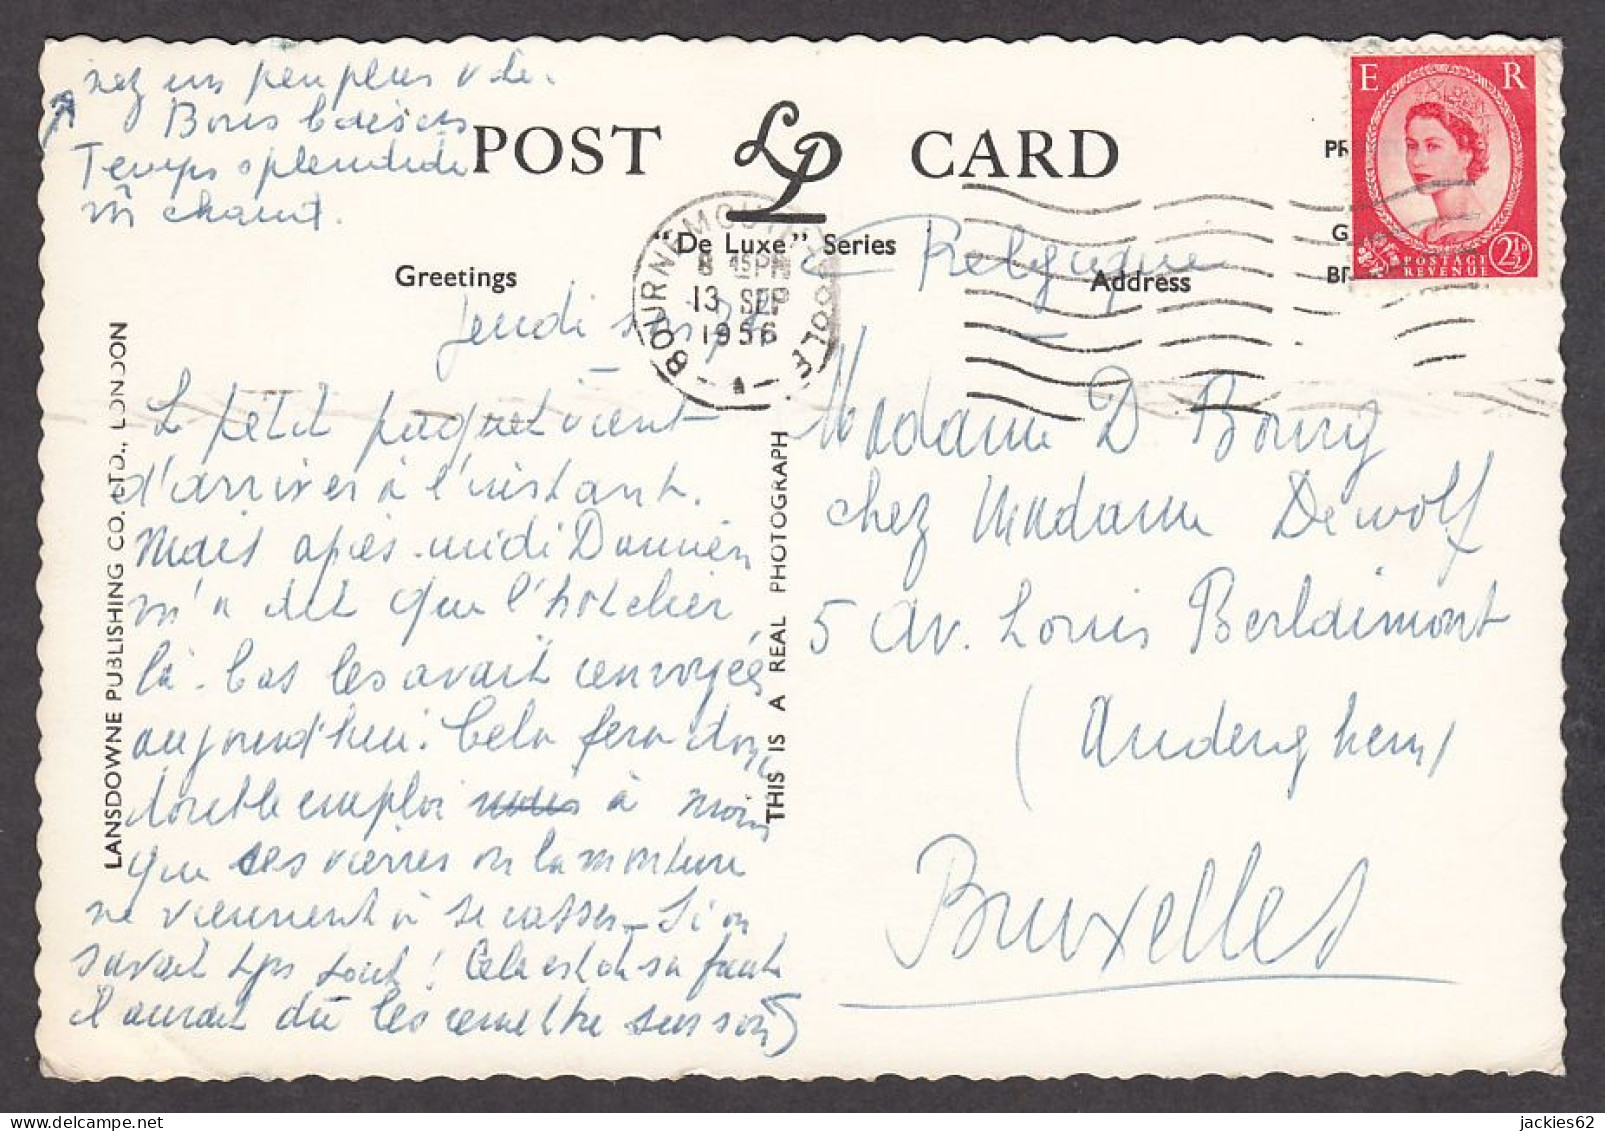 nez un peu plus vite.
Bons baisers
Temps splendide
ni chaud.
POST LP CARD
"De Luxe" Series
Greetings
Address
Belgique
BOURNEMOUTH POOLE
8 45 PM
13 SEP
1956
E R
2½D
POSTAGE
REVENUE
PR
G
BR
Jeudi soir
Le petit paquet vient
d'arriver à l'instant.
Mais après-midi Damien
m'a dit que l'hôtelier
là-bas les avait renvoyés
aujourd'hui. Cela fera donc
double emploi à moins
que ses verres ou la monture
ne viennent à se casser. Si on
savait tjrs tout! Cela est de sa faute
il aurait dû les remettre sur son
Madame D. Bourg
chez Madame Dewolf
5 Av. Louis Berlaimont
(Auderghem)
Bruxelles
LANSDOWNE PUBLISHING CO. LTD., LONDON
THIS IS A REAL PHOTOGRAPH
jackies62